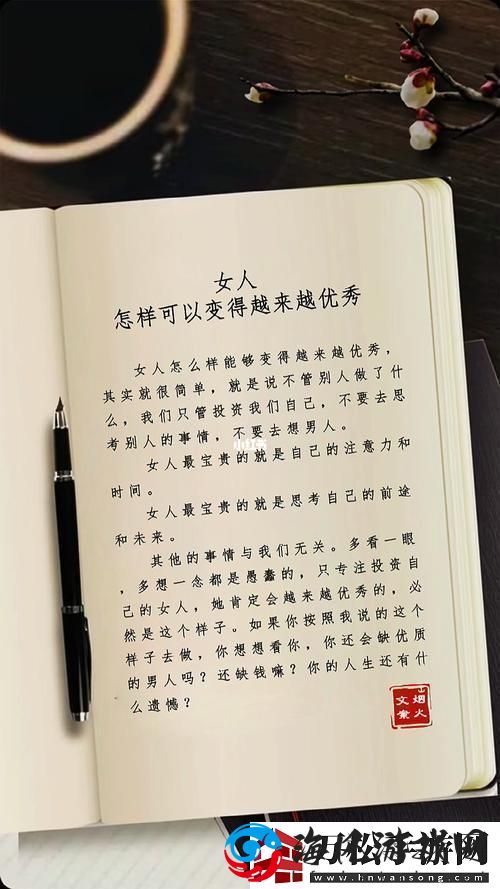 女人
怎样可以变得越来越优秀
女人怎么样能够变得越来越优秀，
其实就很简单，就是说不管别人做了什
么，我们只管投资我们自己，不要去思
考别人的事情，不要去想男人。
女人最宝贵的就是自己的注意力和
时间。
女人最宝贵的就是思考自己的前途
和未来。
其他的事情与我们无关。多看一眼
，多想一念都是愚蠢的，只专注投资自
己的女人，她肯定会越来越优秀的，必
然是这个样子。如果你按照我说的这个
样子去做，你想想看你，你还会缺优质
的男人吗？还缺钱嘛？你的人生还有什
么遗憾？
小红书
山烟火
文案
海松手游网
www.hnwansong.com